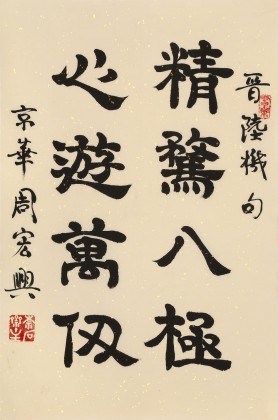 晉陸機句
精騖八極
心遊萬仞
京華周宏興